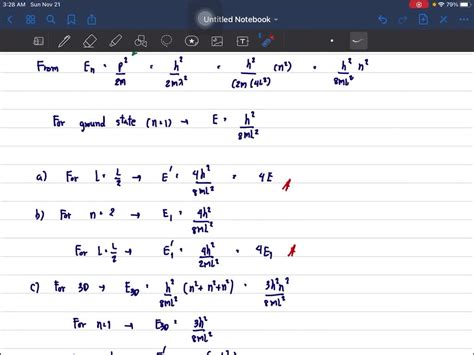 3:28 AM Sun Nov 21
79%
Untitled Notebook
From Eₙ = p²/2m = h²/2mλ² = h²/(2m(4L²)) (n²) = h²/8mL² n²
For ground state (n=1) → E = h²/8mL²
a) For L = L/2 → E' = 4h²/8mL² = 4E
b) For n = 2 → E₁ = 4h²/8mL²
For L = L/2 → E₁' = 4h²/2mL² = 4E₁
c) For 3D → E₃D = h²/8mL² (n²+n²+n²) = 3h²n²/8mL²
For n=1 → E₃D = 3h²/8mL²